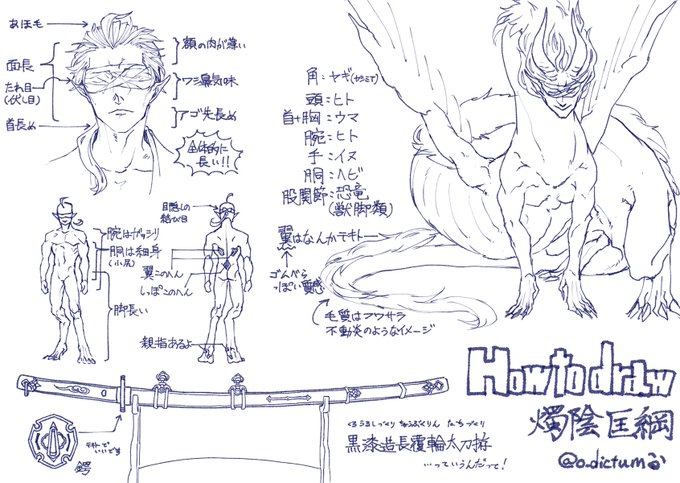 あほ毛
面長
たれ目
(伏し目)
首長め
額の肉が薄い
ワシ鼻気味
アゴ先長め
全体的に
長い!!
角:ヤギ
頭:ヒト
首+胸:ウマ
腕:ヒト
手:イヌ
胴:ヘビ
股関節:恐竜
(獣脚類)
翼はなんかテキトー
ゴムべら
っぽい質感
毛質はフワサラ
不動炎のようなイメージ
目隠しの
結び目
腕はガッシリ
胴は細身
(小尻)
翼このへん
しっぽこのへん
脚長い
親指あるよ
テキトーで
いいです
鍔
くろうるしづくり
たちづくり
黒漆造長覆輪太刀拵
…っていうんだって!
How to draw
燭陰匡綱
@o.dictum